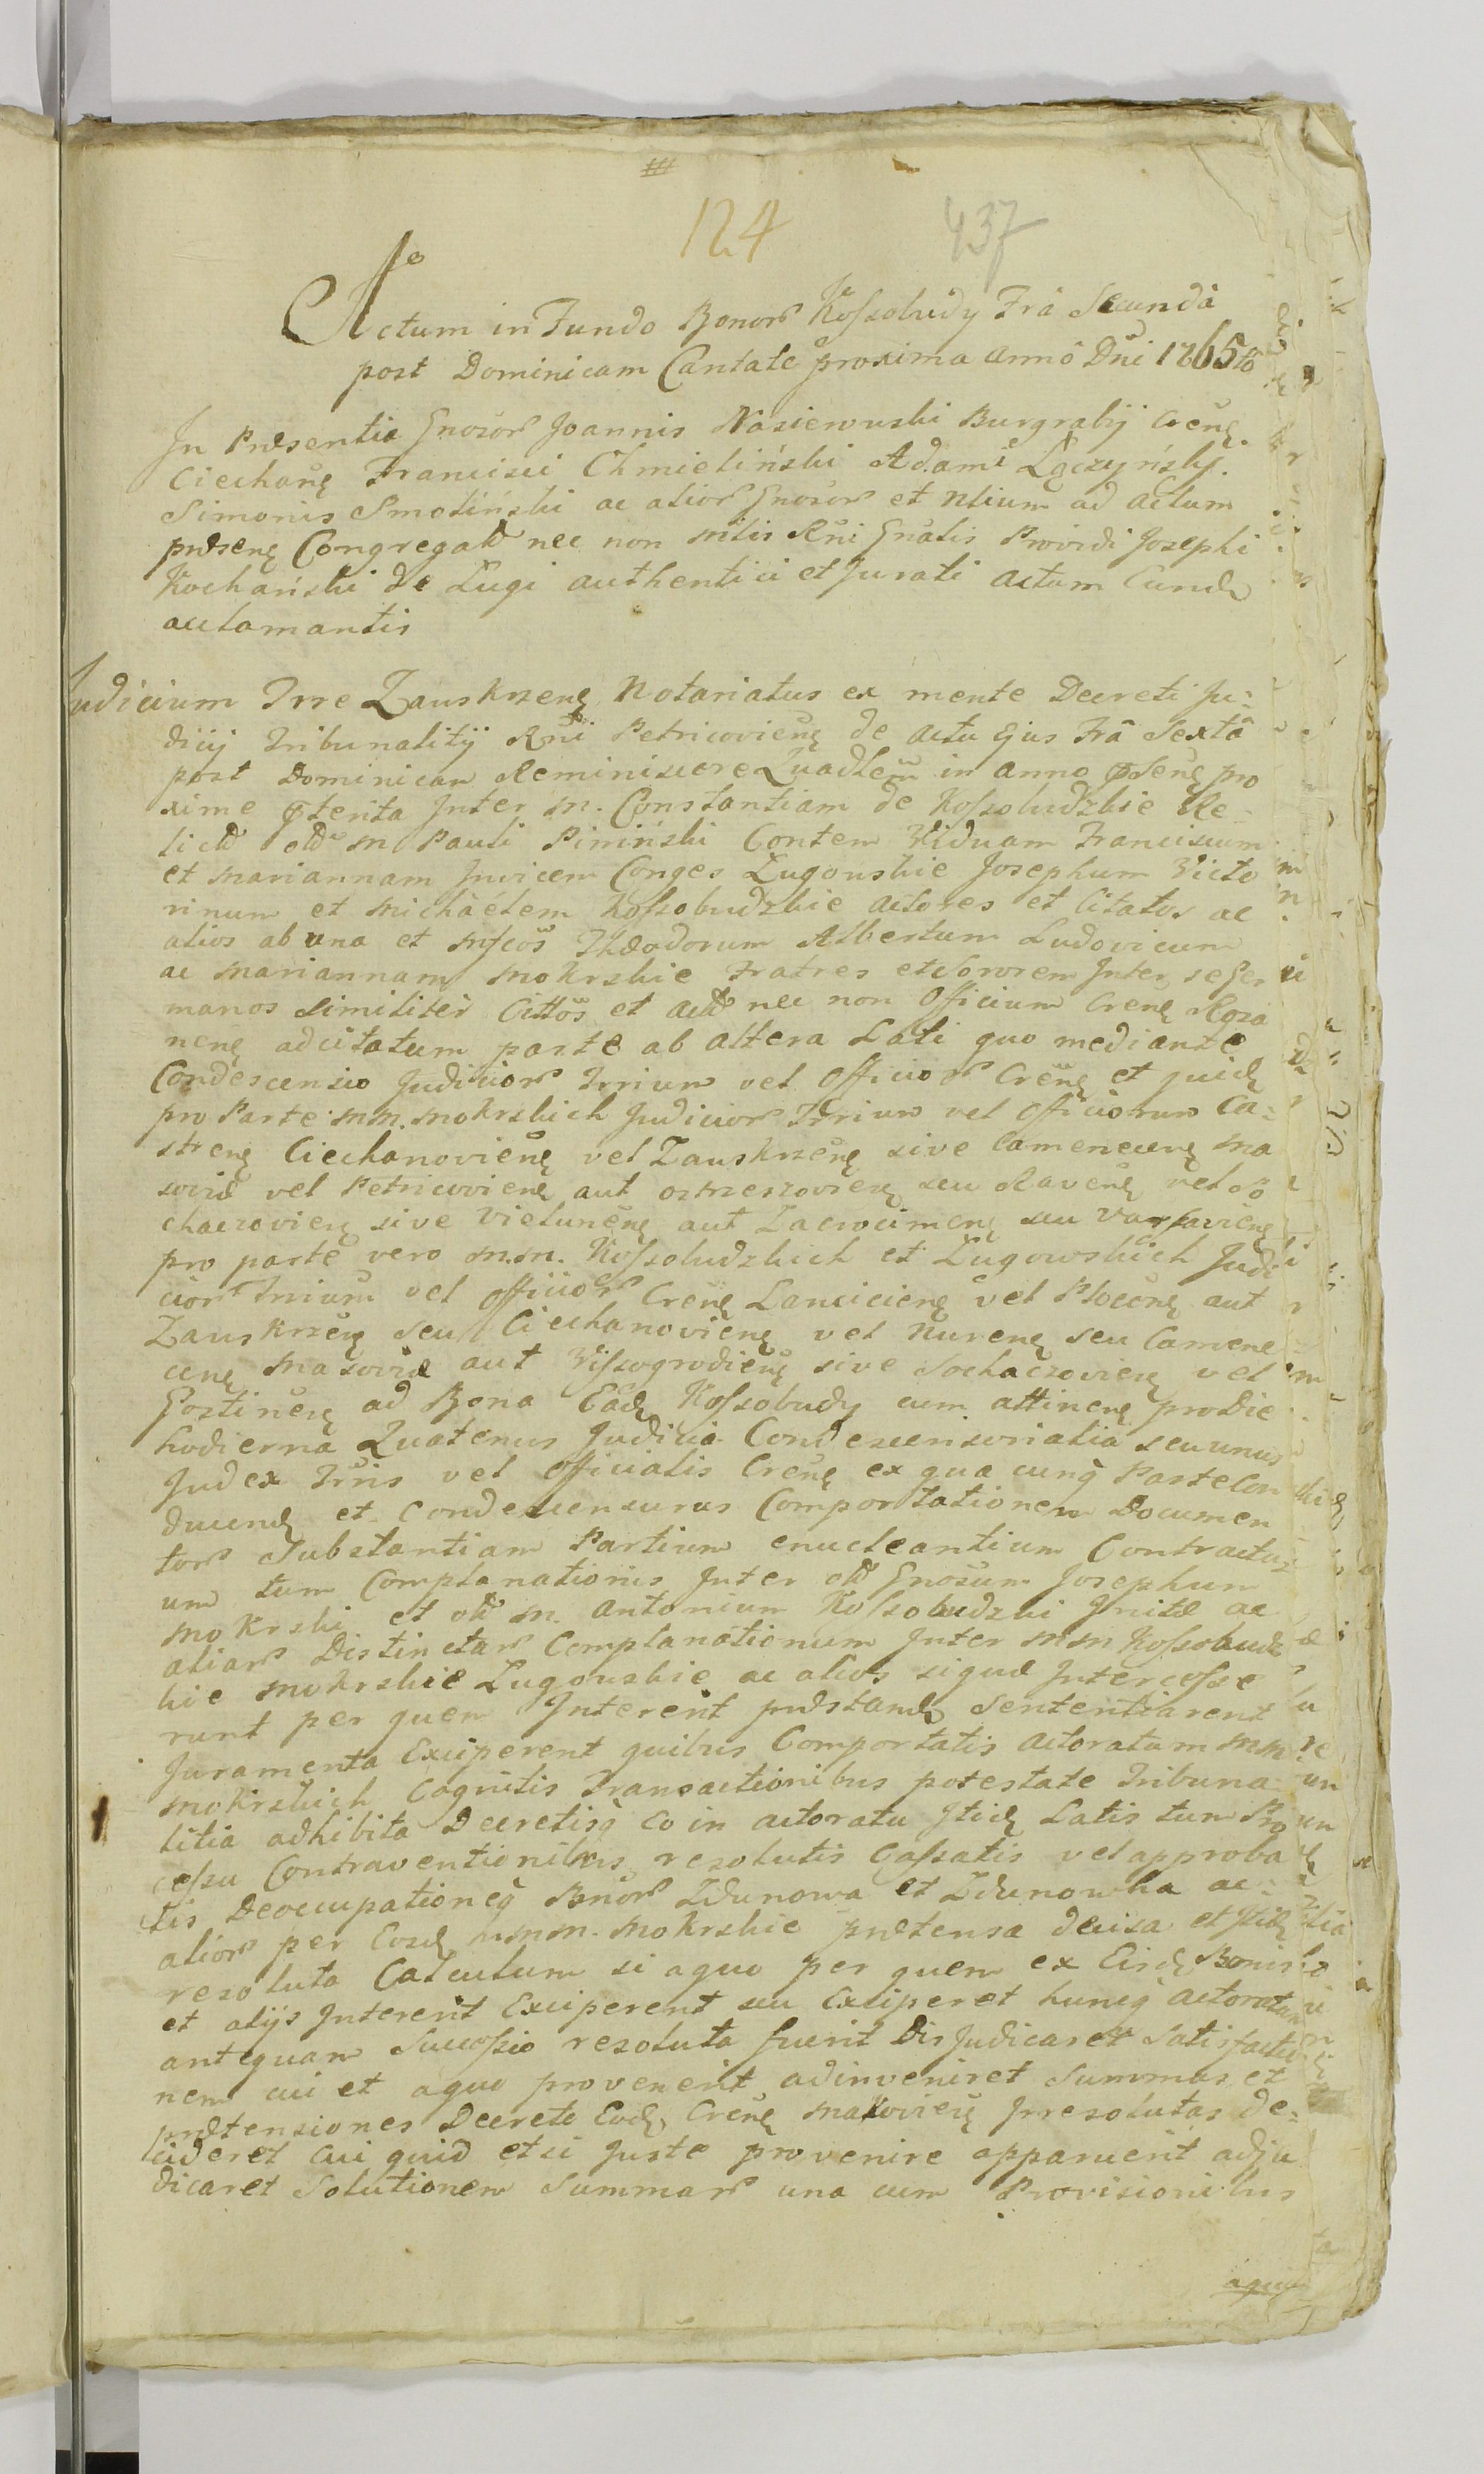 124 437
Actum in Fundo Bonor Kossobudy Fra Secunda
post Dominicam Cantate proxima Anno Dni 1765to
In Præsentia Gnosor Joannis Nasiewuski Burgrabij Crens
Ciechans Francisci Chmieliński Adami Łączyńsky.
Simonis Smoliński ac alior Gnosor et Nlium ad Actum
præsens Congregator nec non Mlis Rni Gnalis Providi Josephi
Kochański de Ługi authentici et Jurati Actum Cund
aclamantis
Judicium Trre Zauskrzens Notariatus ex mente Decreti Ju=
dicij Tribunalitij Rni Petricoviens de Actu Ejus Fra Sexta
post Dominicam Reminiscere Quadlem in Anno pSens pro
xime pterita Inter M. Constantiam de Kossobudzkie Re-
lictam olim M Pauli Piniński Contem Viduam Franciscum
et Mariannam Invicem Conges Ługouskie Josephum Victo
rinum et Michaelem Kossobudzkie Actores et Citatos ac
alios ab una et Mfcos Theodorum Albertum Ludovicum
ac Mariannam Mokrskie Fratres et Sororem Inter se Ger
manos Similiter Cittos et Act nec non Officium Crens Roza
nens adcitatum parte ab altera Lati quo mediante
Condescensio Judicior Trrium vel Officior Crens et quid
pro Parte M.M. Mokrskich Judicior Trrium vel Officiorum Ca=
strens Ciechanoviens vel Zauskrzens sive Camenecens Ma
soviæ vel Petricoviens aut Ostrzeszoviens seu Ravens vel So
chaczoviens sive Vielunens aut Zacrocimens seu Varsaviens
pro parte vero M.M. Kossobudzkich et Ługowskich Judi
cior Trrium vel Officior Crens Lanciciens vel Plocens aut
Zauskrzens seu Ciechanoviens vel Nurens seu Camene
cens Masoviæ aut Vissogrodiens sive Sochaczoviens vel
Gostinens ad Bona Ead Kossobudy cum attinens pro Die
hodierna Quatenus Judicia Condescensorialia seu unus
Judex Trris vel Officialis Crens ex qua cunq Parte Con
ducend et Condescensurus Comportationem Documen
tor Substantiam Partium enucleantium Contractus
um tum Complanationis Inter olim Gnosum Josephum
Mokrski et olim M. Antonium Kossobudzki Initæ ac
aliar Distinctar Complanationum Inter MM Kossobudz
kie Mokrskie Ługouskie ac alios siquæ Intercesse
runt per quem Intererit præstand Sententiarent
Juramenta Exciperent quibus Comportatis Actoratum MM
Mokrskich Cognitis Transactionibus potestate Tribuna
litia adhibita Decretisq Co in actoratu Itid Latis tum Pro
cessu Contraventionibus resolutis Cassatis vel approba
tis Deoccupationeq Bnor Zdunowa et Zdunowka ac
alior per Cosd MM. Mokrskie prætensa decisa et Itid
resoluta Calculum si a quo per quem ex Eisd Bonis
et alijs Interent Exciperent seu Exciperet huncq Actoratum
antequam Successio resoluta fuerit Disjudicaret Satisfactio
nem cui et a quo provenerit adinveniret Summas et
prætensiones Decreto Eod Crens Masoviens Irresolutas de=
cideret Cui quid et si juste provenire apparuerit adju
dicaret Solutionem Summar una cum Provisionibus
aquo